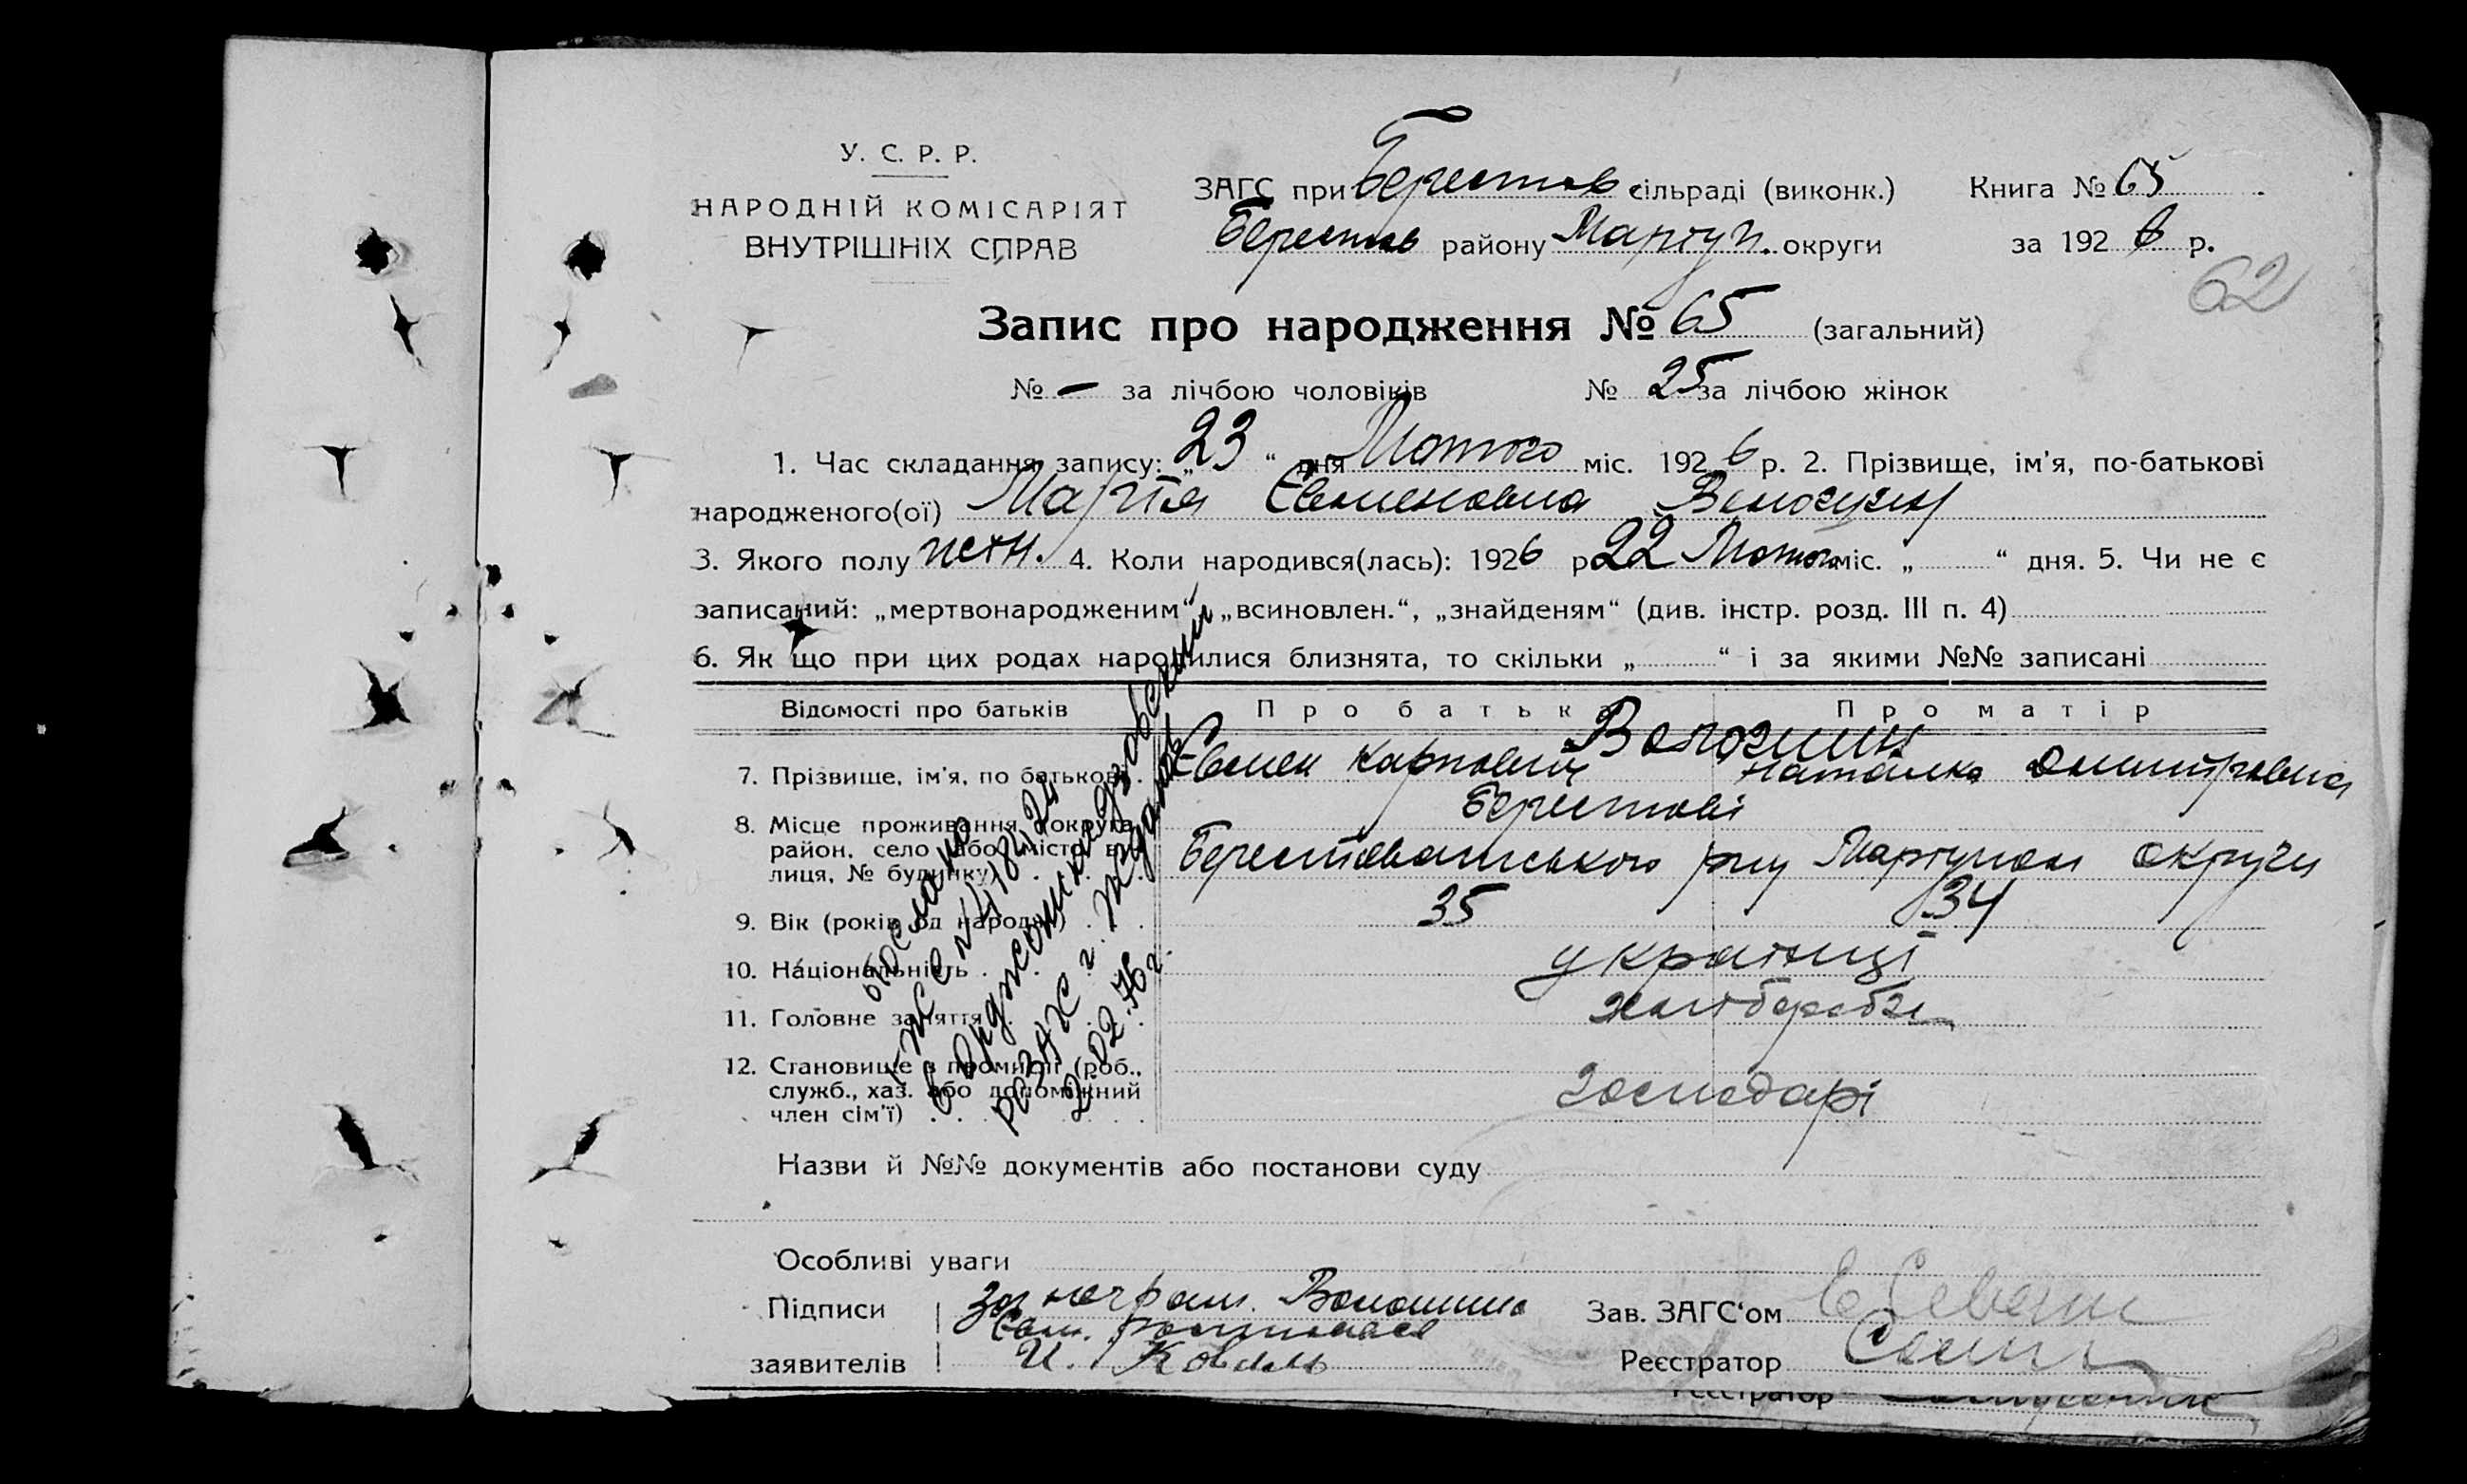 У. С. Р. Р.
НАРОДНІЙ КОМІСАРІЯТ
ВНУТРІШНІХ СПРАВ
ЗАГС при Берестов сільраді (виконк.)
Берестов району Маріуп. округи
Книга № 65
за 1926 р.
62
Запис про народження № 65 (загальний)
№ – за лічбою чоловіків № 25 за лічбою жінок
1. Час складання запису: „23“ дня Лютого міс. 1926 р. 2. Прізвище, ім'я, по-батькові
народженого(ої) Марія
3. Якого полу жен. 4. Коли народився(лась): 1926 р 22 Лютого міс. „ “ дня. 5. Чи не є
записаний: „мертвонародженим“, „всиновлен.“, „знайденям“ (див. інстр. розд. III п. 4)
6. Як що при цих родах народилися близнята, то скільки „ “ і за якими №№ записані
Відомості про батьків Про батька Про матір
Волошин
7. Прізвище, ім'я, по батькові Євмен Карпович Наталка Дмитровна
Берестові
8. Місце проживання (округа, район, село або місто, вулиця, № будинку)
Берестованського р-ну округи
9. Вік (років од народж.) 35 34
10. Національність українці
11. Головне заняття хлібороби
12. Становище в промислі (роб., служб., хаз. або допоміжний член сім'ї) господарі
выслано
в Орджоникидзовский
р. ЗАГС г. Жданов
2. 02. 76 г.
Назви й №№ документів або постанови суду
Особливі уваги
Підписи заявителів
За неграм. Волошина
И. Коваль
Зав. ЗАГС'ом
Реєстратор
Реєстратор